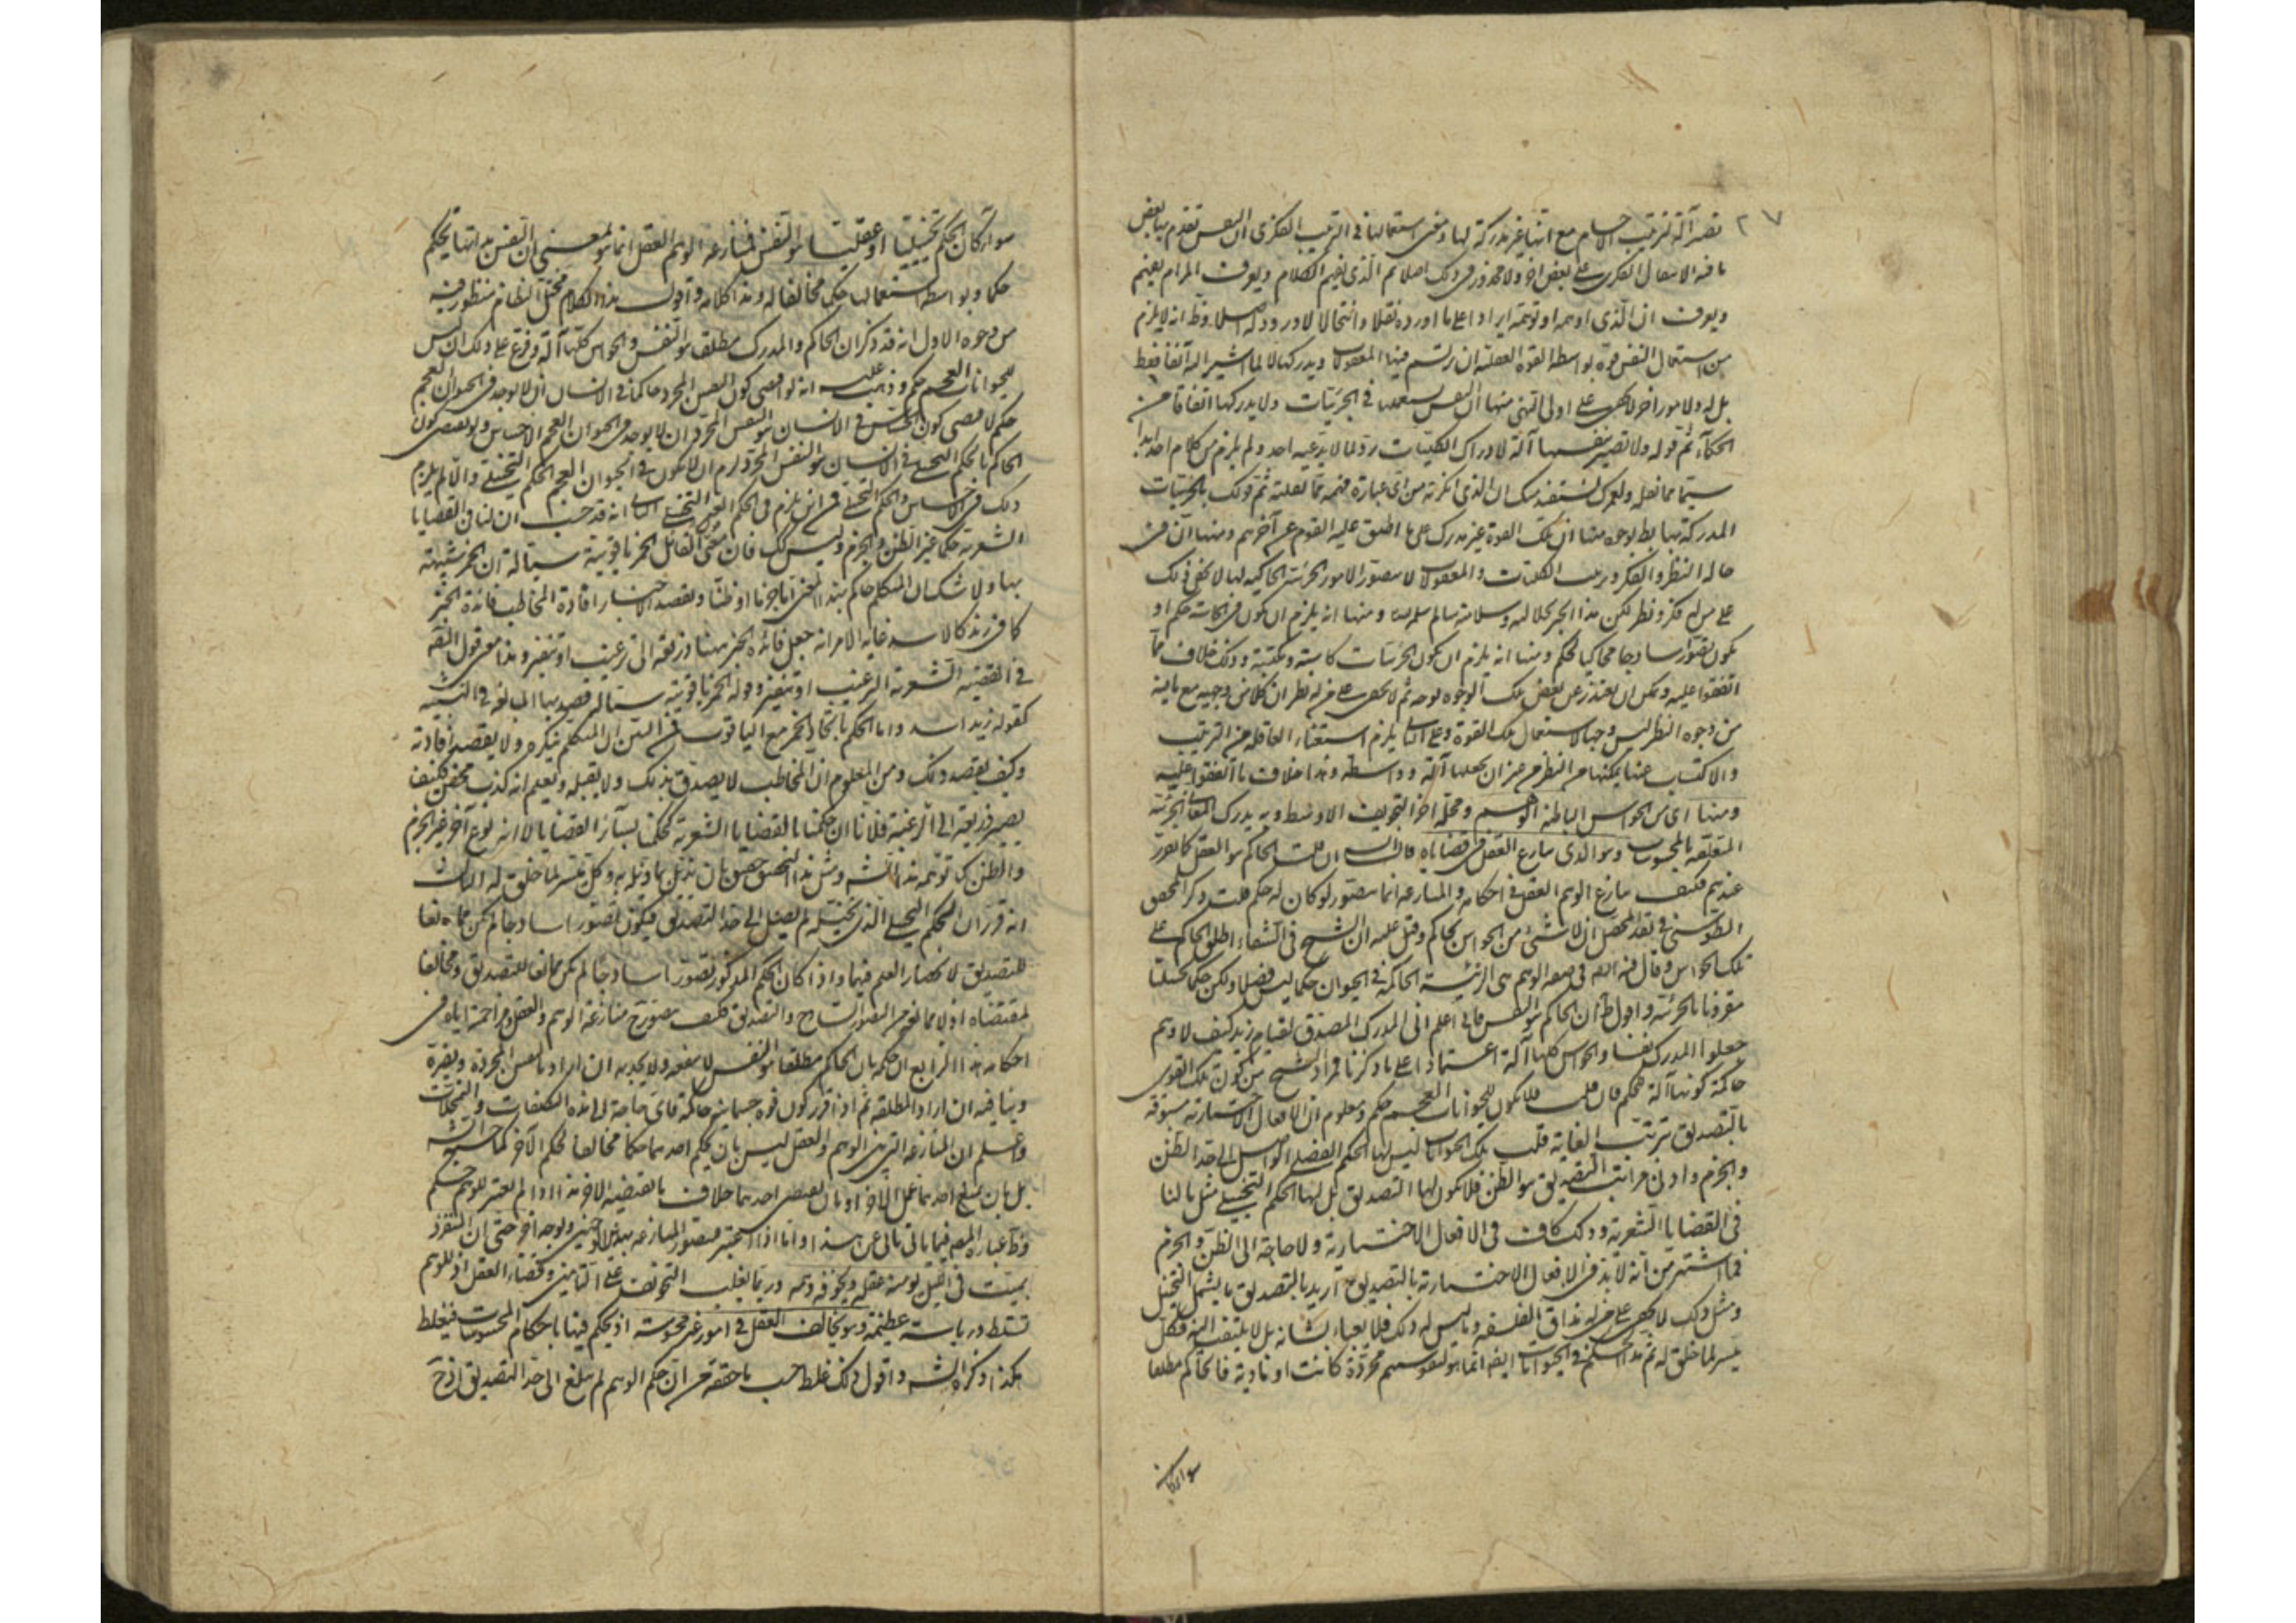 ٢٧
تصير آلة لترتيب الاجسام مع انها غير مدركة لها ومعنى استعمالها في الترتيب الفكري ان النفس تقدم بها بعض
ما فيه الانتقال الفكري على بعض اخر ولا محذور في ذلك اصلا ثم الذي يفهم الكلام ويعرف المرام يعلم
ويعرف ان الذي اوهمه او توهمه ايرادا على ما اورده نقلا وانتحالا لا ورود له اصلا وظ انه لا يلزم
من استعمال النفس قوة بواسطة القوة العقلية ان يرتسم فيها المعقولات ويدركها لا لما اشير اليه آنفا فقط
بل له ولامور اخر لا يخفى على اولى النهى منها ان النفس يستعملها في الجزئيات ولا يدركها اتفاقا من
الحكماء ثم قوله ولا تصير نفسها آلة لادراك الكليات رد لما لا يدعيه احد ولم يلزم من كلام احد ابدا
سيما مما نقله الذي انكرته من اي عبارة فهمه مما نقلته ثم قولك بالجزئيات
المدركة بها بط بوجوه منها ان تلك القوة غير مدركة على ما اطبق عليه القوم عن آخرهم ومنها ان في
حالة النظر والفكر وترتيب الكليات والمعقولات لا يتصور الامور الجزئية الحاكية لها لا يخفى ذلك
على من له فكر ونظر لكن هذا الحبر لجلالته وسلامته سالم منه ومنها انه يلزم ان يكون في الحاسة حكم او
يكون تصور ساذجا محاكيا لحكم ومنها انه يلزم ان يكون الجزئيات كاسبة ومكتسبة وذلك خلاف ما
اتفقوا عليه ويمكن ان يعتذر عن بعض تلك الوجوه بوجه ثم لا يخفى على من له نظر ان كلامي وجيه مع ما فيه
من وجوه النظر ليس وجها لاستعمال تلك القوة وعلى الثاني يلزم استغناء العاقلة من الترتيب
والاكتساب عنها يمكنها من النظر من غير ان يجعلها آلة وواسطة وهذا خلاف ما اتفقوا عليه
ومنها اي من الحواس الباطنة الوهم ومحله آخر التجويف الاوسط وبه يدرك المعاني الجزئية
المتعلقة بالمحسوسات وهو الذي ينازع العقل في قضاياه قال الشه ان قلت الحاكم هو العقل كما تقرر
عندهم فكيف ينازع الوهم العقل في احكامه والمنازعة انما يتصور لو كان له حكم قلت ذكر المحقق
الطوسي في نقد المحصل ان لا شيء من الحواس بحاكم وقيل عليه ان الشيخ في الشفاء اطلق الحاكم على
تلك الحواس وقال فيه انه في صفة الوهم هي الرئيسة الحاكمة في الحيوان حكما ليس فصلا ولكن حكما تخييليا
مقرونا بالجزئية واقول ظ ان الحاكم هو النفس فاني اعلم اني المدرك المصدق لقيام زيد كيف لا وهم
جعلوا المدرك نفسا والحواس كلها آلة اعتمادا على ما ذكرنا فمراد الشيخ من كون تلك القوى
حاكمة كونها آلة للحكم فان قلت فلا يكون للحيوانات العجم حكم ومعلوم ان الافعال الاختيارية مسبوقة
بالتصديق بترتب الغاية قلت تلك الحيوانات ليس لها الحكم الفصل الواصل الى حد الظن
والجزم وادنى مراتب التصديق هو الظن فلا يكون لها التصديق بل لها الحكم التخييلي مثل ما لنا
في القضايا الشعرية وذلك كاف في الافعال الاختيارية ولا حاجة الى الظن والجزم
فما اشتهر من انه لا بد في الافعال الاختيارية بالتصديق اريد بالتصديق ما يشمل التخيل
ومثل ذلك لا يخفى على من له مذاق الفلسفة وما ليس له ذلك فلا يعباء بشانه بل لا يلتفت اليه فكل
ميسر لما خلق له ثم هذا الحكم في الحيوانات ايضا انما هو لنفوسهم مجردة كانت او مادية فالحاكم مطلقا
سواء كان
سواء كان الحكم تخييليا او عقليا هو النفس فمنازعة الوهم العقل انما هو بمعنى ان النفس مع انها يحكم
حكما وبواسطة استعمالها حكما مخالفا له وهذا كلامه واقول هذا الكلام مختل النظام منظور فيه
من وجوه الاول انه قد ذكر ان الحاكم والمدرك مطلقا هو النفس والحواس كلها آلة وفرع على ذلك ان ليس
للحيوانات العجم حكم وذهب عليه انه لو اقتضى كون النفس المجرد حاكما في الانسان ان لا يوجد في الحيوان العجم
حكم لاقتضى كون الحساس في الانسان هو النفس المجرد ان لا يوجد في الحيوان العجم الاحساس ولو اقتضى كون
الحاكم بالحكم التخييلي في الانسان هو النفس المجرد لزم ان لا يكون في الحيوان العجم الحكم التخييلي والا لم يلزم
ذلك في الاحساس والحكم التخييلي فمن اين يلزم في الحكم الغير التخييلي الثاني انه قد حسب ان لنا في القضايا
الشعرية حكما غير الظن والجزم وليس كك فان معنى القائل الخمر ياقوتية سيالة ان الخمر شبيهة
بها ولا شك ان المتكلم حاكم بهذا المعنى اما جزما او ظنا ويقصد الاخبار افادة المخاطب فائدة الخبر
كما في زيد كالاسد غاية الامر انه جعل فائدة الخبر ههنا ذريعة الى ترغيب او تنفير وهذا معنى قول الثقة
في القضية الشعرية الترغيب او تنفير وقوله الخمر ياقوتية سيالة قصد بها المبالغة في التشبيه
كقوله زيد اسد واما الحكم باتحاد الخمر مع الياقوت فمن البين ان المتكلم ينكره ولا يقصد افادته
وكيف يقصد ذلك ومن المعلوم ان المخاطب لا يصدق بذلك ولا يقبله ويعلم انه كذب محض فكيف
يصير ذريعة الى الرغبة فلا نا ان حكمنا بالقضايا الشعرية كحكمنا بسائر القضايا لا انه نوع آخر غير الجزم
والظن كما توهمه هذا الشه ومثل هذا التحقيق حقيق بان يذيل بما ذيله به وكل ميسر لما خلق له الثالث
انه قرر ان الحكم التخييلي الذي تخيله لم يصل الى حد التصديق فيكون تصورا ساذجا لم يكن مخالفا
للتصديق لانحصار العلم فيهما واذا كان الحكم المذكور تصورا ساذجا لم يكن مخالفا للتصديق ومخالفا
لمقتضاه اذ لا ممانعة بين التصور الساذج والتصديق فكيف يتصور ح منازعة الوهم والعقل ومزاحمة اياه في
احكامه هذا الرابع ان حكمه بان الحاكم مطلقا هو النفس لا ينفعه ولا يجديه ان اراد بالنفس المجردة ويضره
وينافيه ان اراد المطلقة ثم اذا قرر كون قوة جسمانية حاكمة فاي حاجة الى هذه التكلفات والتمحلات
واعلم ان المنازعة التي بين الوهم والعقل ليس بان يحكم احدهما حكما مخالفا لحكم الآخر كما حسبه الشه
بل بان يمنع احدهما عمل الاخر او بان يقتضي احدهما خلاف ما يقتضيه الاخر هذا اذا لم يعتبر للوهم حكم
وظ عبارة المصه فيما ياتي تابى عن هذا واما اذا اعتبر فيتصور المنازعة بهذين الوجهين وبوجه آخر حتى ان المتفرد
بميت في الليل يومنه عقله ويخوفه وهمه وربما يغلب التخويف على التامين وقضاء العقل اذ للوهم
تسلط ورياسة عظيمة وهو يخالف العقل في امور غير محسوسة اذ يحكم فيها باحكام المحسوسات فيغلط
هكذا ذكره الشه واقول ذلك غلط حسب ما حققه من ان حكم الوهم لم يبلغ الى حد التصديق اذ ح